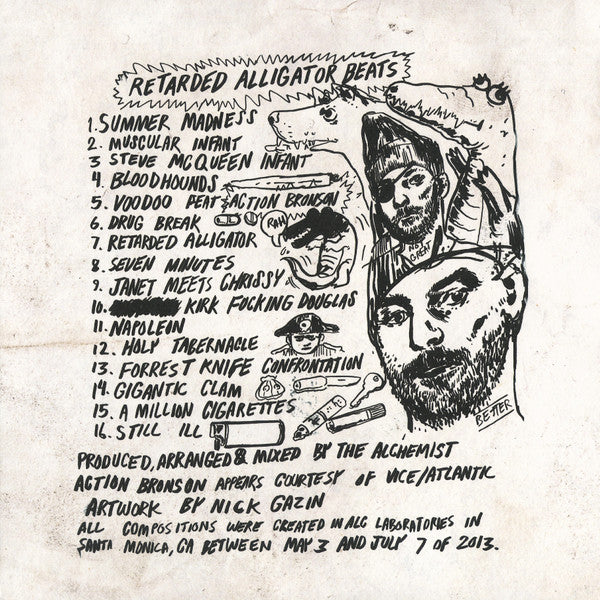 RETARDED ALLIGATOR BEATS
1. SUMMER MADNESS
2. MUSCULAR INFANT
3 STEVE MCQUEEN INFANT
4. BLOODHOUNDS
5. VOODOO FEAT ACTION BRONSON
6. DRUG BREAK
7. RETARDED ALLIGATOR
8. SEVEN MINUTES
9. JANET MEETS CHRISSY
10. KIRK FUCKING DOUGLAS
11. NAPOLEIN
12. HOLY TABERNACLE
13. FORREST KNIFE CONFRONTATION
14. GIGANTIC CLAM
15. A MILLION CIGARETTES
16. STILL ILL
RAH
BETTER
PRODUCED, ARRANGED & MIXED BY THE ALCHEMIST
ACTION BRONSON APPEARS COURTESY OF VICE/ATLANTIC
ARTWORK BY NICK GAZIN
ALL COMPOSITIONS WERE CREATED IN ALC LABORATORIES IN
SANTA MONICA, CA BETWEEN MAY 3 AND JULY 7 OF 2013.